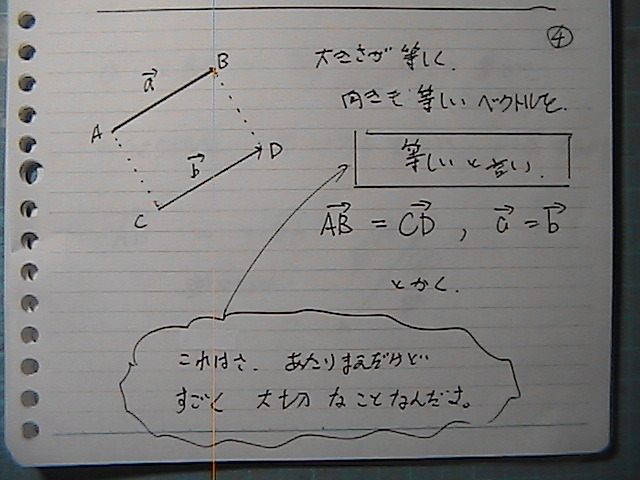 ④
大きさが等しく、
向きも等しいベクトルを、
等しいと言い、
B
a⃗
A
b⃗
D
C
AB⃗ = CD⃗ , a⃗ = b⃗
とかく.
これはさ、あたりまえだけど
すごく 大切 なことなんだよ。